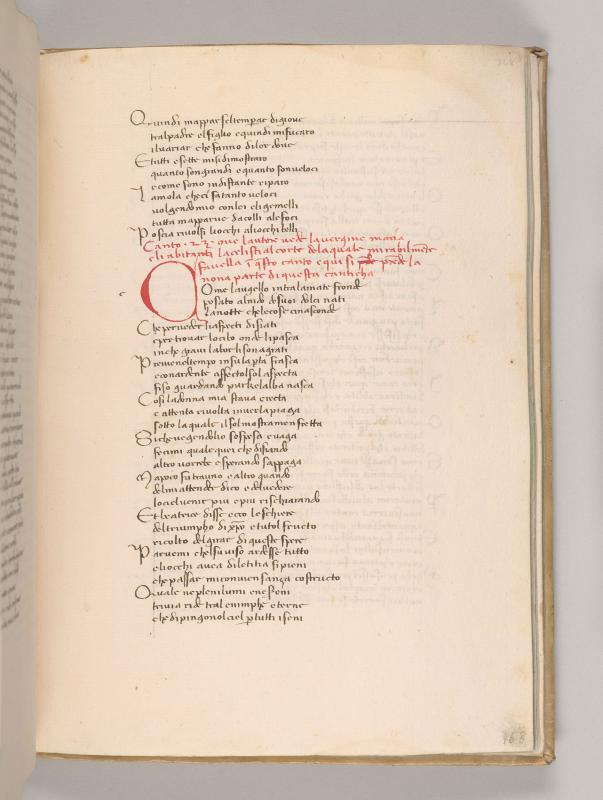 Quindi mapparse ltemperar digioue
tralpadre elfiglio equindi mifucaro
iluariar chefanno dilor doue
Etutti esette misidimostraro
quanto songrandi equanto sonueloci
ecome sono indistante riparo
Laiuola checi fatanto ueloci
uolgendomio conlei etigemelli
tutta mapparue dacolli alefoci
Poscia riuolsi liocchi aliocchi belli
Canto · 23 · oue lautore uede lauergine maria
eli abitanti lacelistial corte dela quale mirabilmẽte
fauella ĩ q̃sto canto equi si prende la
nona parte di questa canticha
Come laugello intralamate fronde
posato alnido desuoi dolci nati
lanotte chelecose cinasconde
Che perueder liaspecti disiati
eper trouar locibo onde lipasca
inche graui labor lisonagrati
Preuene ltempo insulapta frasca
econardente affecto lsol aspecta
fiso guardando pur chelalba nasca
Cosi ladonna mia staua erecta
e attenta riuolta inuerla piaga
sotto la quale ilsol mostramen fretta
Siche uegendolio sospesa euaga
fecimi quale quei che disiando
altro uorrebe esperando sappaga
Mapoco fu trauno ealtro quando
delmiattender dico edeluedere
lociel uenir piu epiu rischiarando
Et beatrice disse ecco leschiere
deltriumpho di xp̃o etutol fructo
ricolto delgirar di queste spere
Paruemi chelsuuiso ardesse tutto
eliocchi auea diletitia sipieni
che passar miconuien sanza costructo
Quale neplenilumi eneseni
triuia ride tral enimphe eterne
che dipingonol ciel p tutti iseni
168